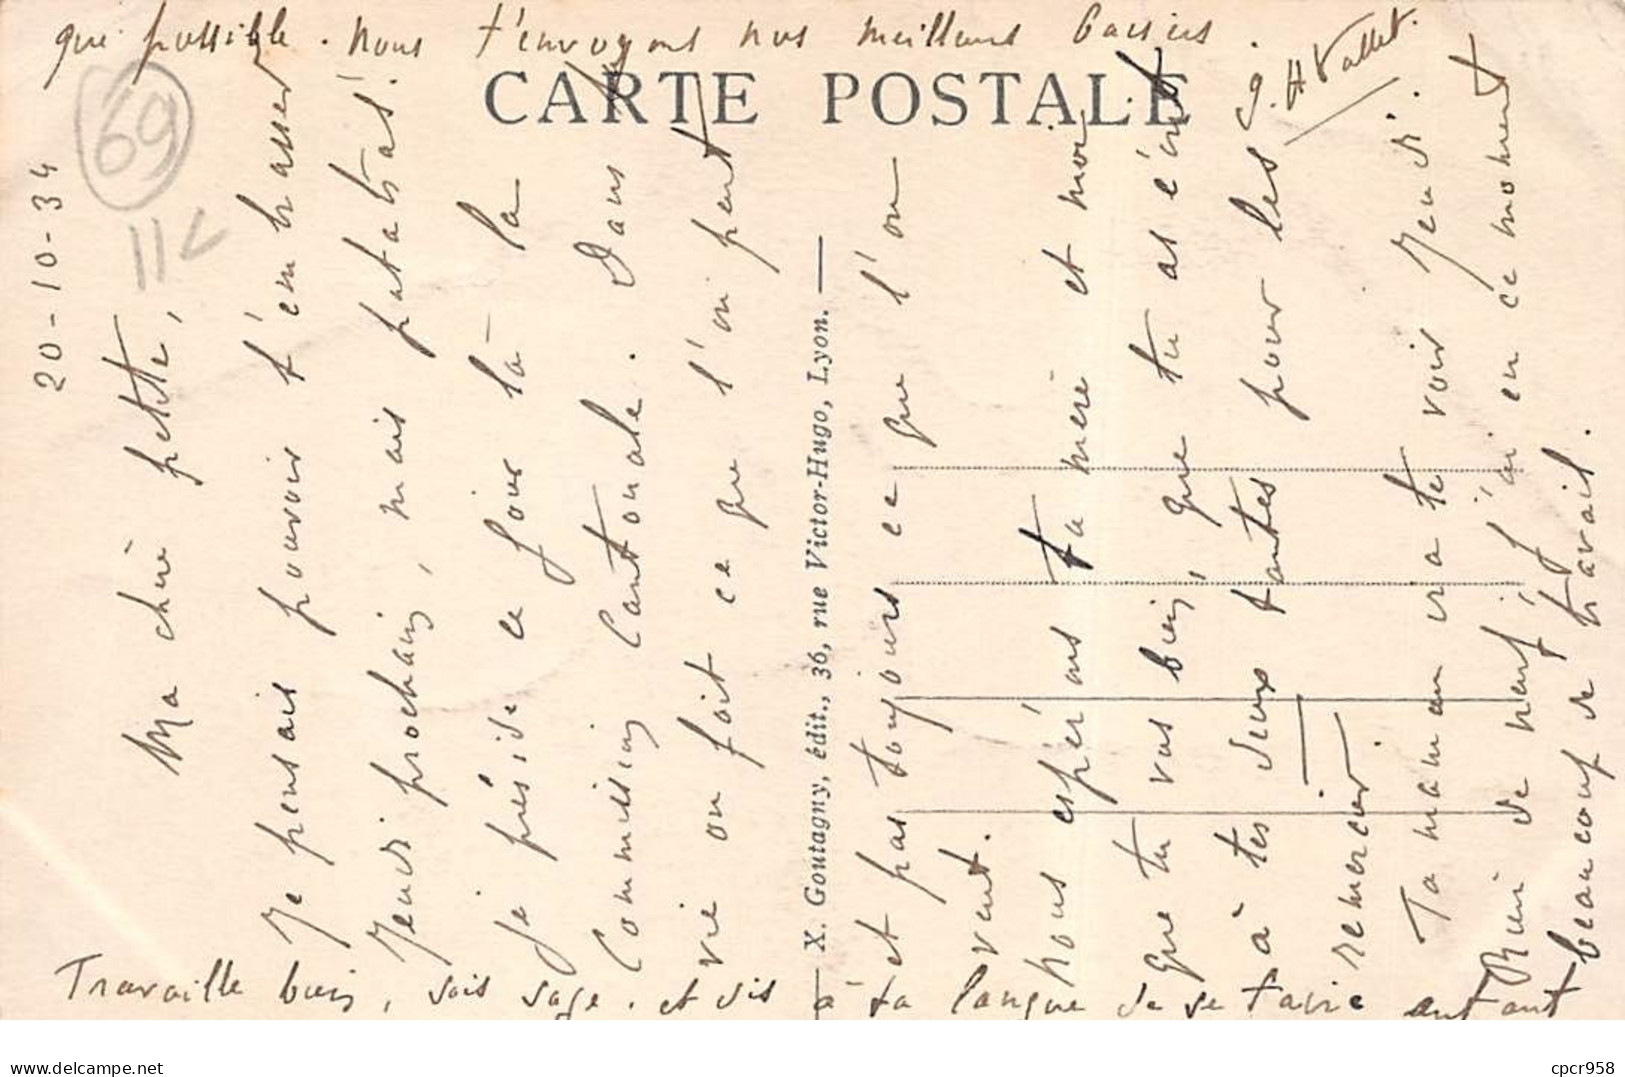 20-10-34
Ma chère petite,
Je pensais pouvoir t'embrasser
Jeudi prochain, mais patatras!
je préside ce jour là la
Commission Cantonale. Dans la
vie on fait ce que l'on peut
et pas toujours ce que l'on
veut.
Nous espérons ta mère et moi
que tu vas bien, que tu as écrit
à tes deux tantes pour les
remercier.
Ta maman ira te voir Jeudi.
Rien de neuf, j'ai en ce moment
beaucoup de travail.
Travaille bien, sois sage. et dis à ta langue de se taire autant
que possible. Nous t'envoyons nos meilleurs baisers.
H Vallet.
CARTE POSTALE
X. Goutagny, édit., 36, rue Victor-Hugo, Lyon.
69
11<
delcampe.net
cpcr958